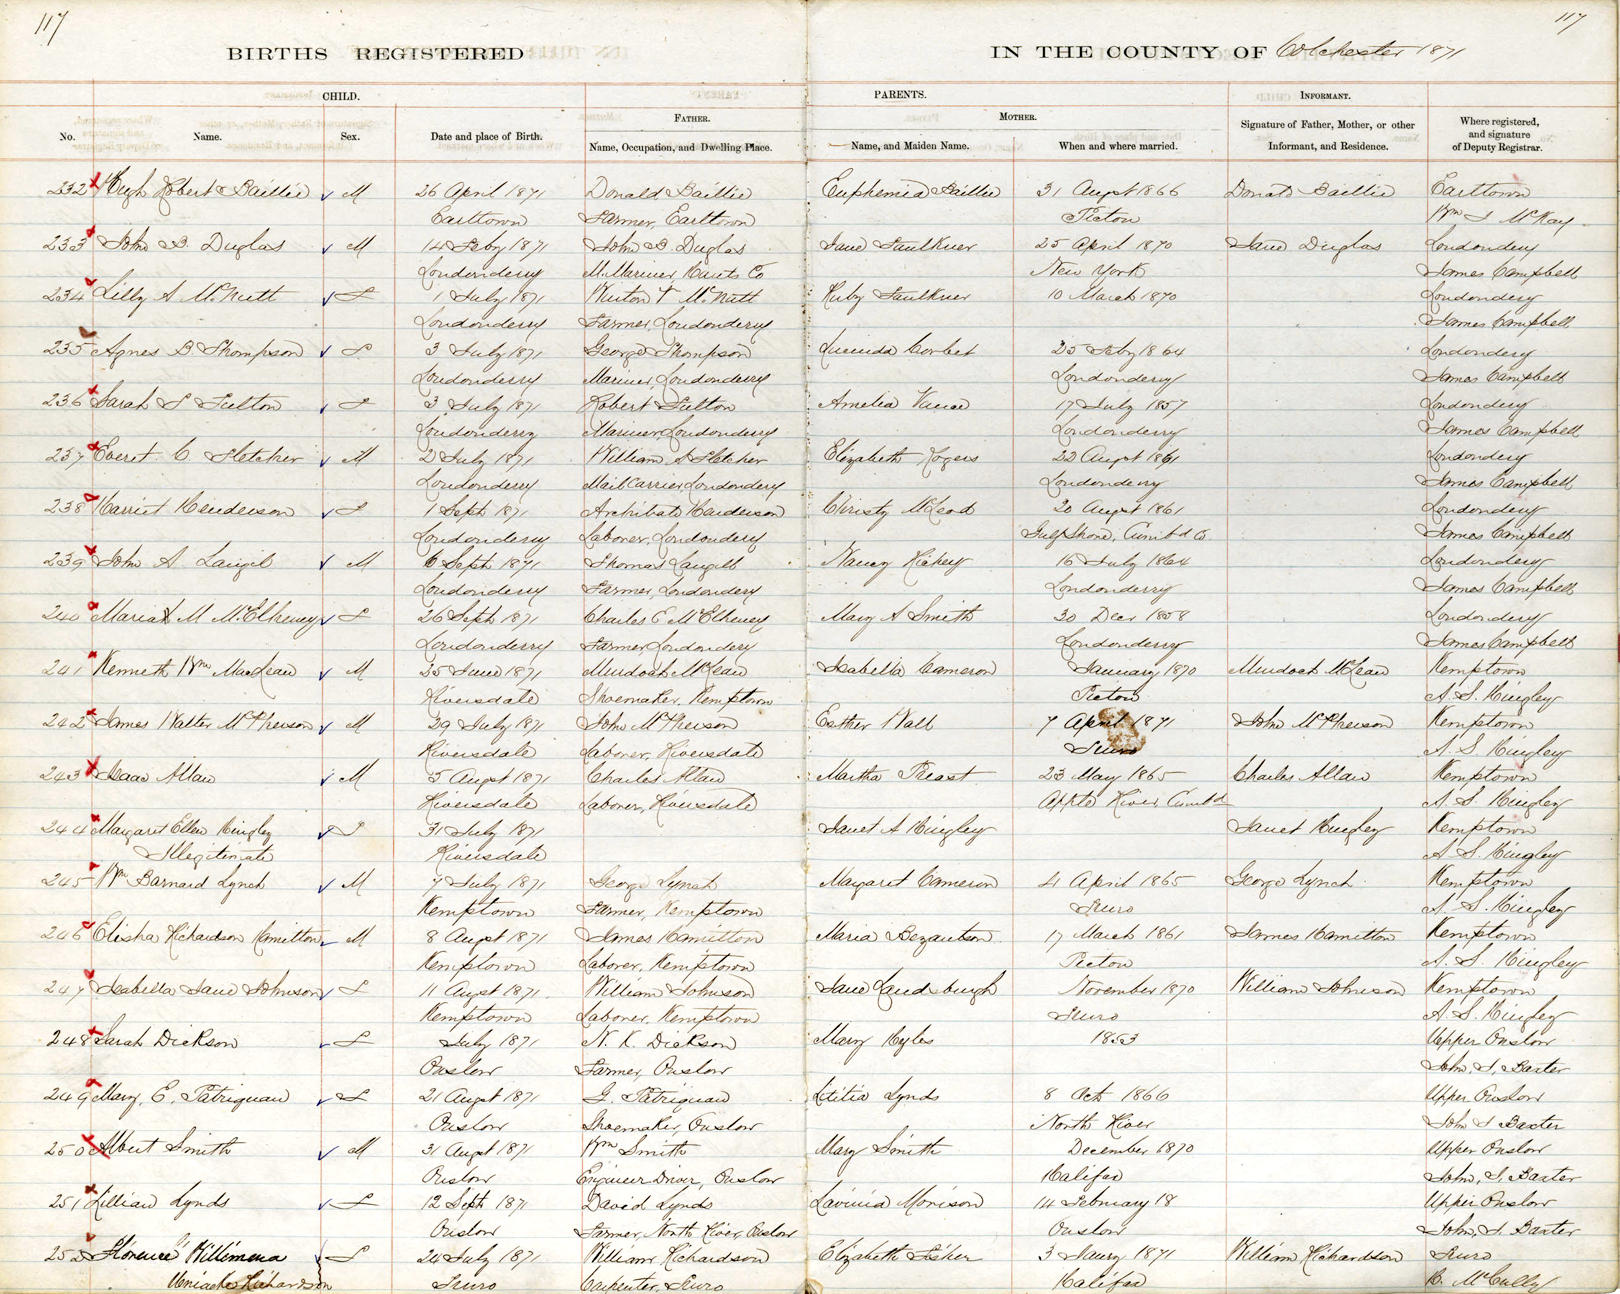 117
117
BIRTHS REGISTERED
IN THE COUNTY OF Colchester 1871
CHILD.
PARENTS.
INFORMANT.
FATHER.
MOTHER.
No.
Name.
Sex.
Date and place of Birth.
Name, Occupation, and Dwelling Place.
Name, and Maiden Name.
When and where married.
Signature of Father, Mother, or other Informant, and Residence.
Where registered, and signature of Deputy Registrar.
232 Hugh Robert Baillie M 26 April 1871 Donald Baillie Euphemia Baillie 31 Augst 1866 Donald Baillie Earltown
Earltown Farmer, Earltown Picton Wm S McKay
233 John B. Duglas M 14 Feby 1871 John B Duglas Jane Faulkner 25 April 1870 Jane Duglas Londonderry
Londonderry M. Mariner Hants Co New York James Campbell
234 Lilly A McNutt F 1 July 1871 McNutt Ruby Faulkner 10 March 1870 Londonderry
Londonderry Farmer, Londonderry James Campbell
235 Agnes B Thompson F 3 July 1871 George Thompson Lucinda Corbet 25 Feby 1864 Londonderry
Londonderry Mariner, Londonderry Londonderry James Campbell
236 Sarah F Fulton F 3 July 1871 Robert Fulton Amelia Vance 17 July 1857 Londonderry
Londonderry Mariner Londonderry Londonderry James Campbell
237 Everet C Fletcher M 2 July 1871 William A Fletcher Elizabeth Rogers 22 Augst 1861 Londonderry
Londonderry Mail Carrier, Londonderry Londonderry James Campbell
238 Harriet Henderson F 1 Septr 1871 Archibald Henderson Christy McLeod 20 Augst 1861 Londonderry
Londonderry Laborer, Londonderry Gulf Shore, Cumb'd Co James Campbell
239 John A Langil M 6 Septr 1871 Thomas Langill Nancy Hickey 16 July 1864 Londonderry
Londonderry Farmer, Londonderry Londonderry James Campbell
240 Maria M McElheney F 26 Septr 1871 Charles E McElheney Mary A Smith 30 Decr 1858 Londonderry
Londonderry Farmer Londonderry Londonderry James Campbell
241 Kenneth Wm MacLean M 25 June 1871 Murdoch McLean Isabella Cameron January 1870 Murdoch McLean Kemptown
Riversdale Shoemaker, Kemptown Picton A. S. Kingley
242 James Walter McPherson M 29 July 1871 John McPherson Esther Wall 7 April 1871 John McPherson Kemptown
Riversdale Laborer, Riversdale Truro A. S. Kingley
243 Isaac Allan M 5 Augst 1871 Charles Allan Martha Preast 23 May 1865 Charles Allan Kemptown
Riversdale Laborer, Riversdale Apple River Cumb'd A. S. Kingley
244 Margaret Ellen Kingley F 31 July 1871 Janet A Kingley Janet Kingley Kemptown
Illegitimate Riversdale A. S. Kingley
245 Wm Barnard Lynch M 7 July 1871 George Lynch Margaret Cameron 4 April 1865 George Lynch Kemptown
Kemptown Farmer, Kemptown Truro A. S. Kingley
246 Elisha Richardson Hamilton M 8 Augst 1871 James Hamilton Maria Bezantson 17 March 1861 James Hamilton Kemptown
Kemptown Laborer, Kemptown Picton A. S. Kingley
247 Isabella Jane Johnson F 11 Augst 1871 William Johnson Jane Landsburgh November 1870 William Johnson Kemptown
Kemptown Laborer, Kemptown Truro A. S. Kingley
248 Sarah Dickson F July 1871 N. K. Dickson Mary Hyles 1853 Upper Onslow
Onslow Farmer, Onslow John, S, Baxter
249 Mary, E, Patriquan F 21 Augst 1871 G. Patriquan Letitia Lynds 8 Oct 1866 Upper Onslow
Onslow Shoemaker, Onslow North River John S Baxter
250 Albert Smith M 31 Augst 1871 Wm Smith Mary Smith December 1870 Upper Onslow
Onslow Engineer Driver, Onslow Halifax John, S, Baxter
251 Lillian Lynds F 12 Septr 1871 David Lynds Lavinia Morrison 14 February 18 Upper Onslow
Onslow Farmer, North River, Onslow Onslow John, S, Baxter
252 Florence Willimena F 24 July 1871 William Richardson Elizabeth Fisher 3 Jany 1871 William Richardson Truro
Uniacke Richardson Truro Carpenter, Truro Halifax R. McCully